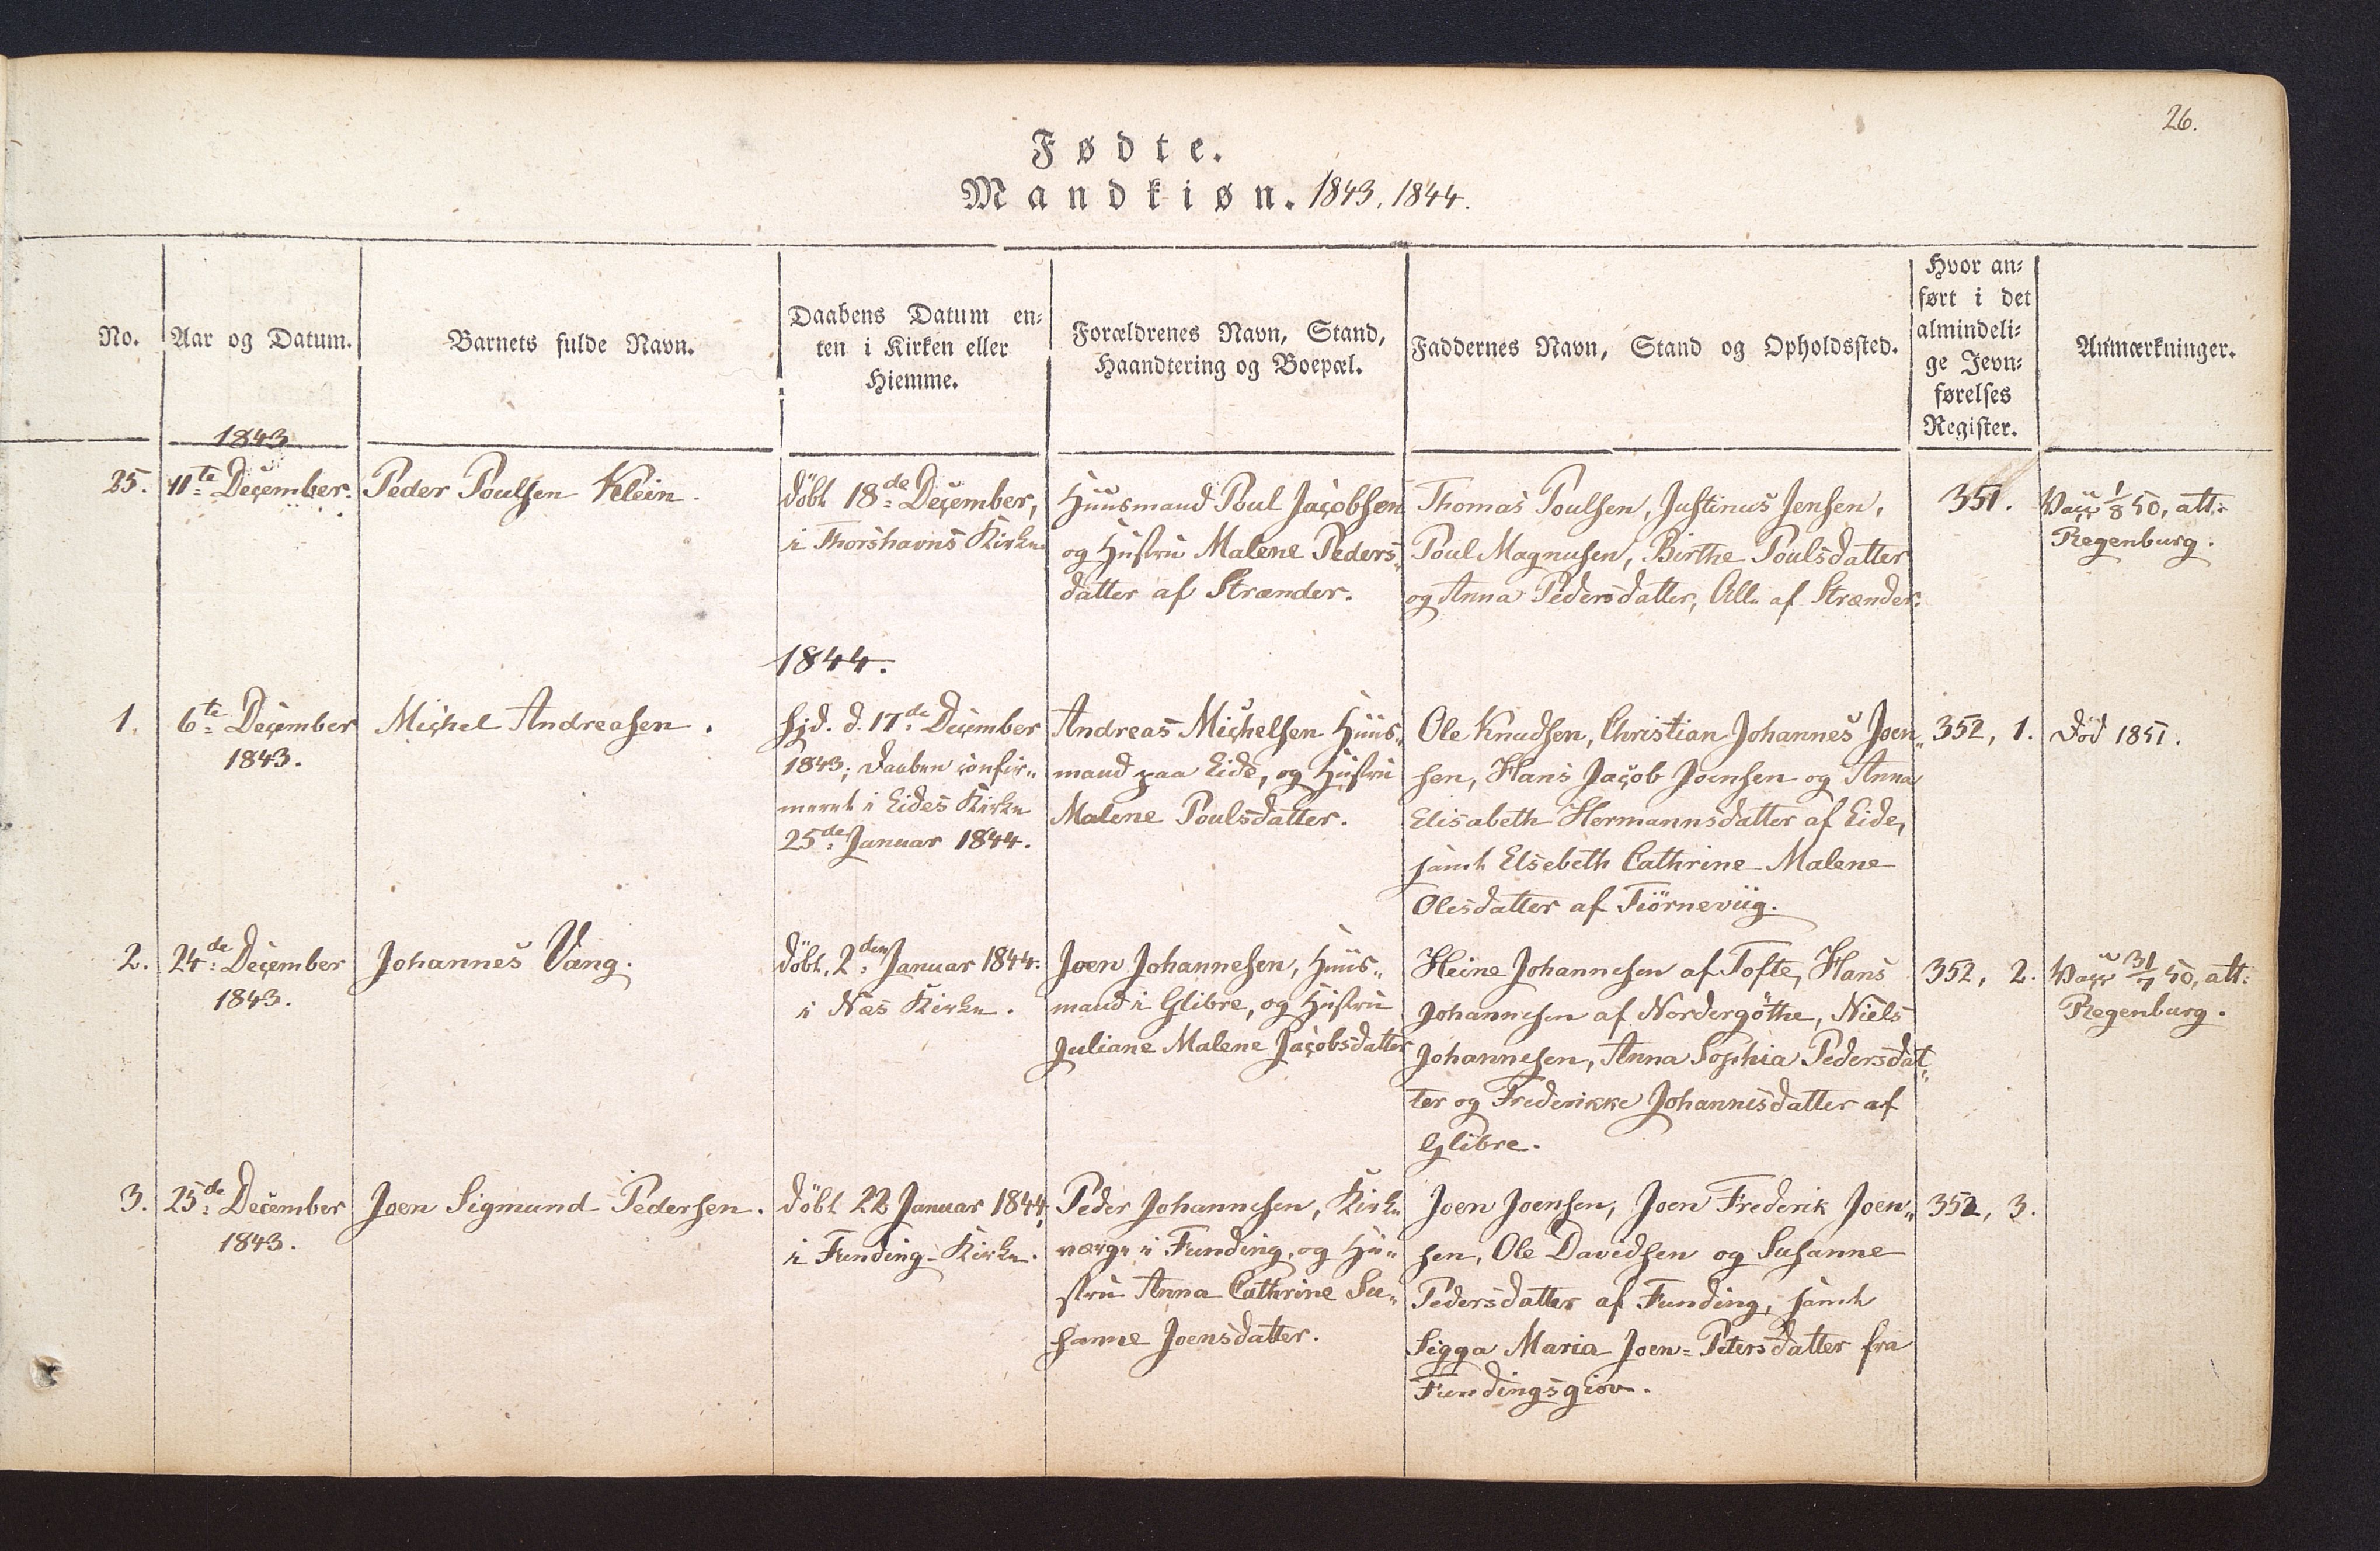 26.
Fødte.
Mandkiøn. 1843, 1844.
No.
Aar og Datum.
Barnets fulde Navn.
Daabens Datum en-
ten i Kirken eller
Hiemme.
Forældrenes Navn, Stand,
Haandtering og Boepæl.
Faddernes Navn, Stand og Opholdssted.
Hvor an-
ført i det
almindeli-
ge Jevn-
førelses
Register.
Anmærkninger.
1843
25.
11te December.
Peder Poulsen Klein.
döbt 18de December,
i Thorshavns Kirke
Huusmand Poul Jacobsen
og Hustru Malene Peders-
datter af Strænder.
Thomas Poulsen, Justinus Jensen,
Poul Magnusen, Birthe Poulsdatter
og Anna Pedersdatter, Alle af Strænder.
351.
Vacc 1/8 50, att:
Regenburg.
1844.
1.
6te December
1843.
Michel Andreasen.
hjd. d. 17de December
1843; Daaben confir-
meret i Eides Kirke
25de Januar 1844.
Andreas Michelsen Huus-
mand paa Eide, og Hustru
Malene Poulsdatter.
Ole Knudsen, Christian Johannes Joen-
sen, Hans Jacob Joensen og Anna
Elisabeth Hermannsdatter af Eide,
samt Elsebeth Cathrine Malene
Olesdatter af Tiörneviig.
352, 1.
död 1851.
2.
24de December
1843.
Johannes Vang.
döbt, 2den Januar 1844.
i Næs Kirke.
Joen Johannesen, Huus-
mand i Glibre, og Hustru
Juliane Malene Jacobsdatter
Heine Johannesen af Tofte, Hans
Johannesen af Nordergöthe, Niels
Johannesen, Anna Sophia Pedersdat-
ter og Frederikke Johannesdatter af
Glibre.
352, 2.
Vacc 31/7 50, att:
Regenburg.
3.
25de December
1843.
Joen Sigmund Pedersen.
döbt 22 Januar 1844,
i Funding Kirke.
Peder Johannesen, Kirke
værge i Funding, og Hu-
stru Anna Cathrine Su-
sanne Joensdatter.
Joen Joensen, Joen Frederik Joen-
sen, Ole Davidsen og Susanne
Pedersdatter af Funding, samt
Sigga Maria Joen-Petersdatter fra
Fundingsgiov.
352, 3.